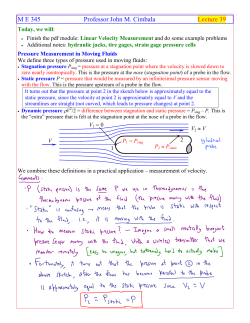 M E 345 Professor John M. Cimbala Lecture 39
Today, we will:
• Finish the pdf module: Linear Velocity Measurement and do some example problems
• Additional notes: hydraulic jacks, tire gauges, strain gage pressure cells
Pressure Measurement in Moving Fluids
We define three types of pressure used in moving fluids:
• Stagnation pressure Pstag = pressure at a stagnation point where the velocity is slowed down to
zero nearly isentropically. This is the pressure at the nose (stagnation point) of a probe in the flow.
• Static pressure P = pressure that would be measured by an infinitesimal pressure sensor moving
with the flow. This is the pressure upstream of a probe in the flow.
It turns out that the pressure at point 2 in the sketch below is approximately equal to the
static pressure, since the velocity at point 2 is approximately equal to V and the
streamlines are straight (not curved, which leads to pressure changes) at point 2.
• Dynamic pressure ρV²/2 = difference between stagnation and static pressure = Pstag - P. This is
the "extra" pressure that is felt at the stagnation point at the nose of a probe in the flow.
V1 = 0
V2 ≈ V
V
P1 = Pstag
2
P2 ≈ Pstatic
cylindrical
probe
We combine these definitions in a practical application – measurement of velocity.
Comments:
• P (static pressure) is the same P we use in Thermodynamics = the
thermodynamic pressure of the fluid (the pressure moving with the fluid)
• "Static" is confusing – means that the probe is static with respect
to the fluid, i.e., it is moving with the fluid
• How to measure static pressure? – Imagine a small neutrally buoyant
pressure sensor moving with the fluid, with a wireless transmitter that we
monitor remotely [easy to imagine, but extremely hard to actually make]
• Fortunately, it turns out that the pressure at point ② in the
above sketch, after the flow has become parallel to the probe
is approximately equal to the static pressure since V2 ≈ V
P2 ≈ Pstatic = P